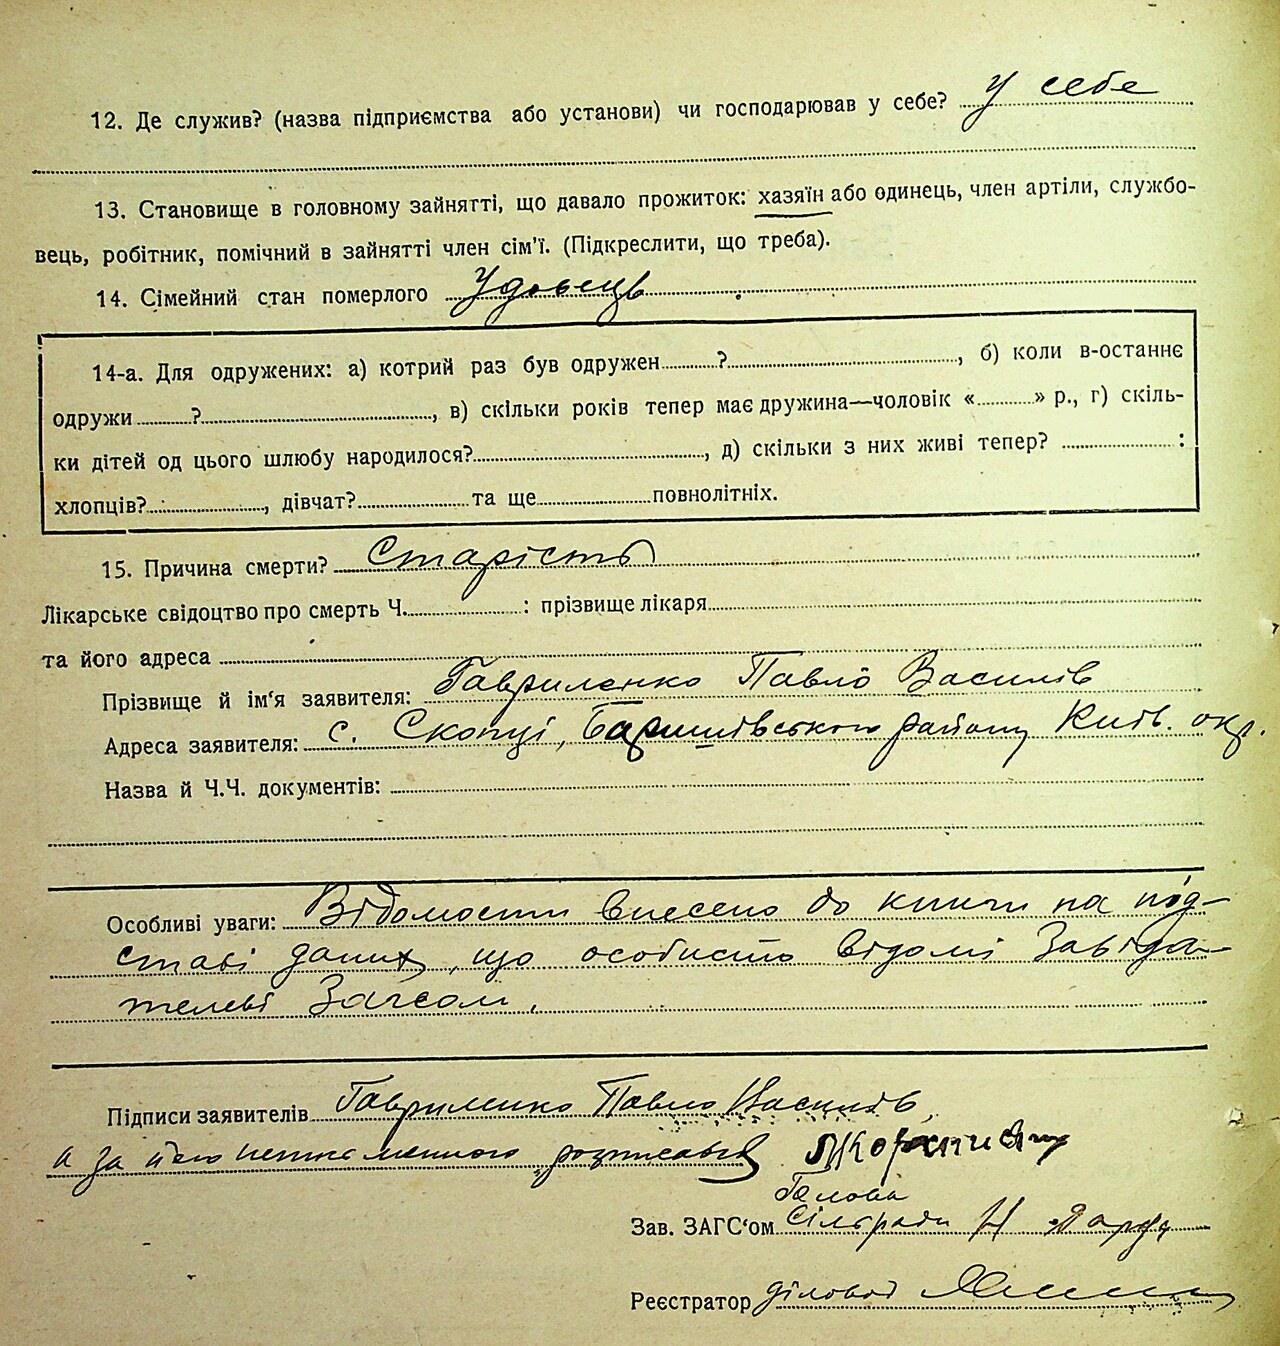 12. Де служив? (назва підприємства або установи) чи господарював у себе? у себе
13. Становище в головному зайнятті, що давало прожиток: хазяїн або одинець, член артіли, службо-
вець, робітник, помічний в зайнятті член сім'ї. (Підкреслити, що треба).
14. Сімейний стан померлого Удовець
14-а. Для одружених: а) котрий раз був одружен ? , б) коли в-останнє
одружи ? , в) скільки років тепер має дружина—чоловік « » р., г) скіль-
ки дітей од цього шлюбу народилося? , д) скільки з них живі тепер? :
хлопців? , дівчат? та ще повнолітніх.
15. Причина смерти? Старість
Лікарське свідоцтво про смерть Ч. : прізвище лікаря
та його адреса
Прізвище й ім'я заявителя: Гавриленко Павло Василів
Адреса заявителя: с. Скопці, Баришівського району Київ. окр.
Назва й Ч.Ч. документів:
Особливі уваги: Відомости внесено до книги на під-
ставі даних, що особисто відомі Завіда-
телеві Загсом.
Підписи заявителів Гавриленко Павло Василів,
а за його неписьменного розписався
Голова
Зав. ЗАГС'ом Сільради
Реєстратор діловод